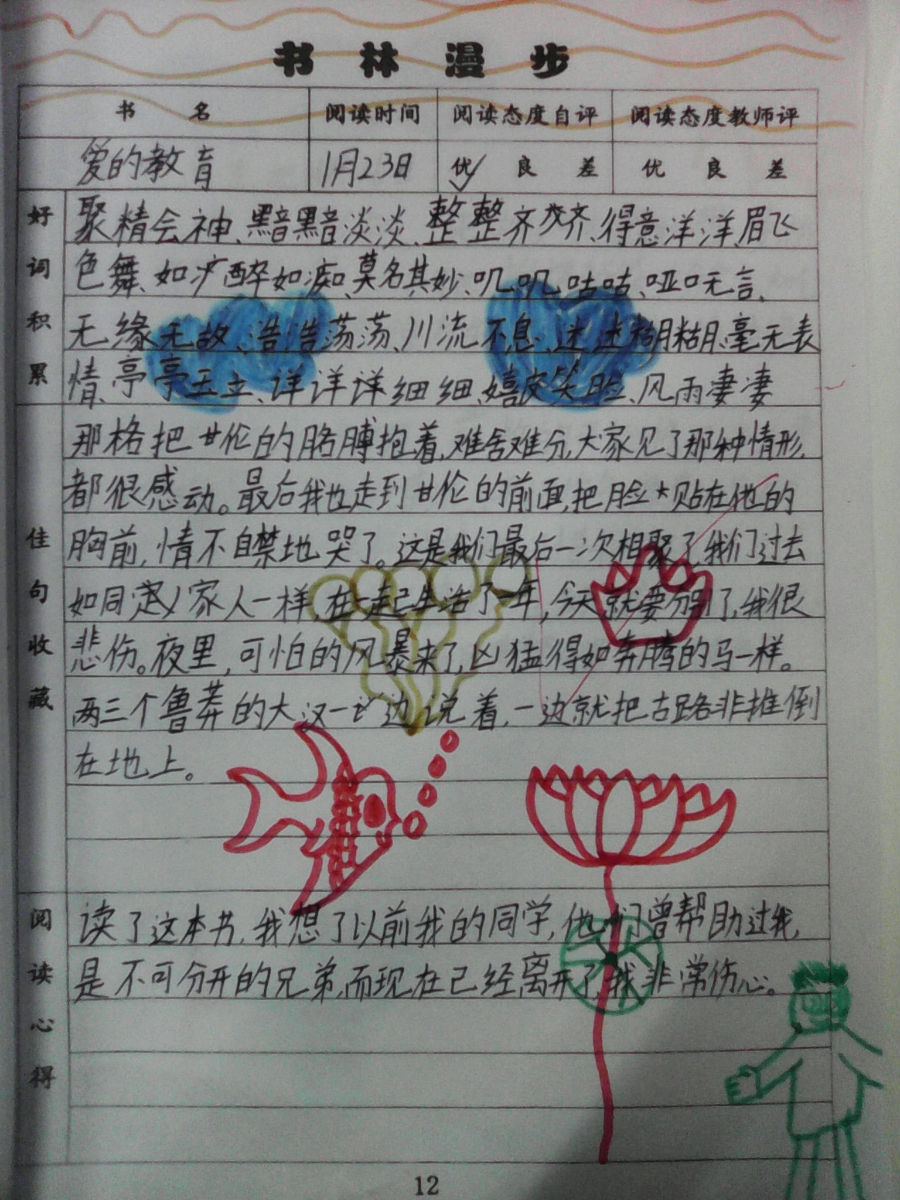 书林漫步
书名 阅读时间 阅读态度自评 阅读态度教师评
爱的教育 1月23日 优√ 良 差 优 良 差
好词积累
聚精会神、黯黯淡淡、整整齐齐、得意洋洋眉飞
色舞、如醉如痴、莫名其妙、叽叽咕咕、哑口无言、
无缘无故、浩浩荡荡、川流不息、迷迷糊糊、毫无表
情、亭亭玉立、详详详细细、嬉皮笑脸、风雨妻妻
佳句收藏
那格把甘伦的胳膊抱着,难舍难分,大家见了那种情形,
都很感动。最后我也走到甘伦的前面,把脸贴在他的
胸前,情不自禁地哭了。这是我们最后一次相聚了,我们过去
如同家人一样,在一起生活了一年,今天就要分别了,我很
悲伤。夜里,可怕的风暴来了,凶猛得如奔腾的马一样。
两三个鲁莽的大汉一边说着,一边就把古路非推倒
在地上。
阅读心得
读了这本书,我想了以前我的同学,他们曾帮助过我,
是不可分开的兄弟,而现在已经离开了,我非常伤心。
12